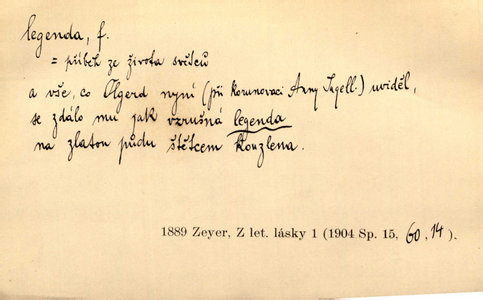 legenda, f.
= příběh ze života světců
a vše, co Olgerd nyní (při korunovaci Anny Jagell.) uviděl,
se zdálo mu jak vzrušná legenda
na zlatou půdu štětcem kouzlena.
1889 Zeyer, Z let. lásky 1 (1904 Sp. 15, 60, 14).